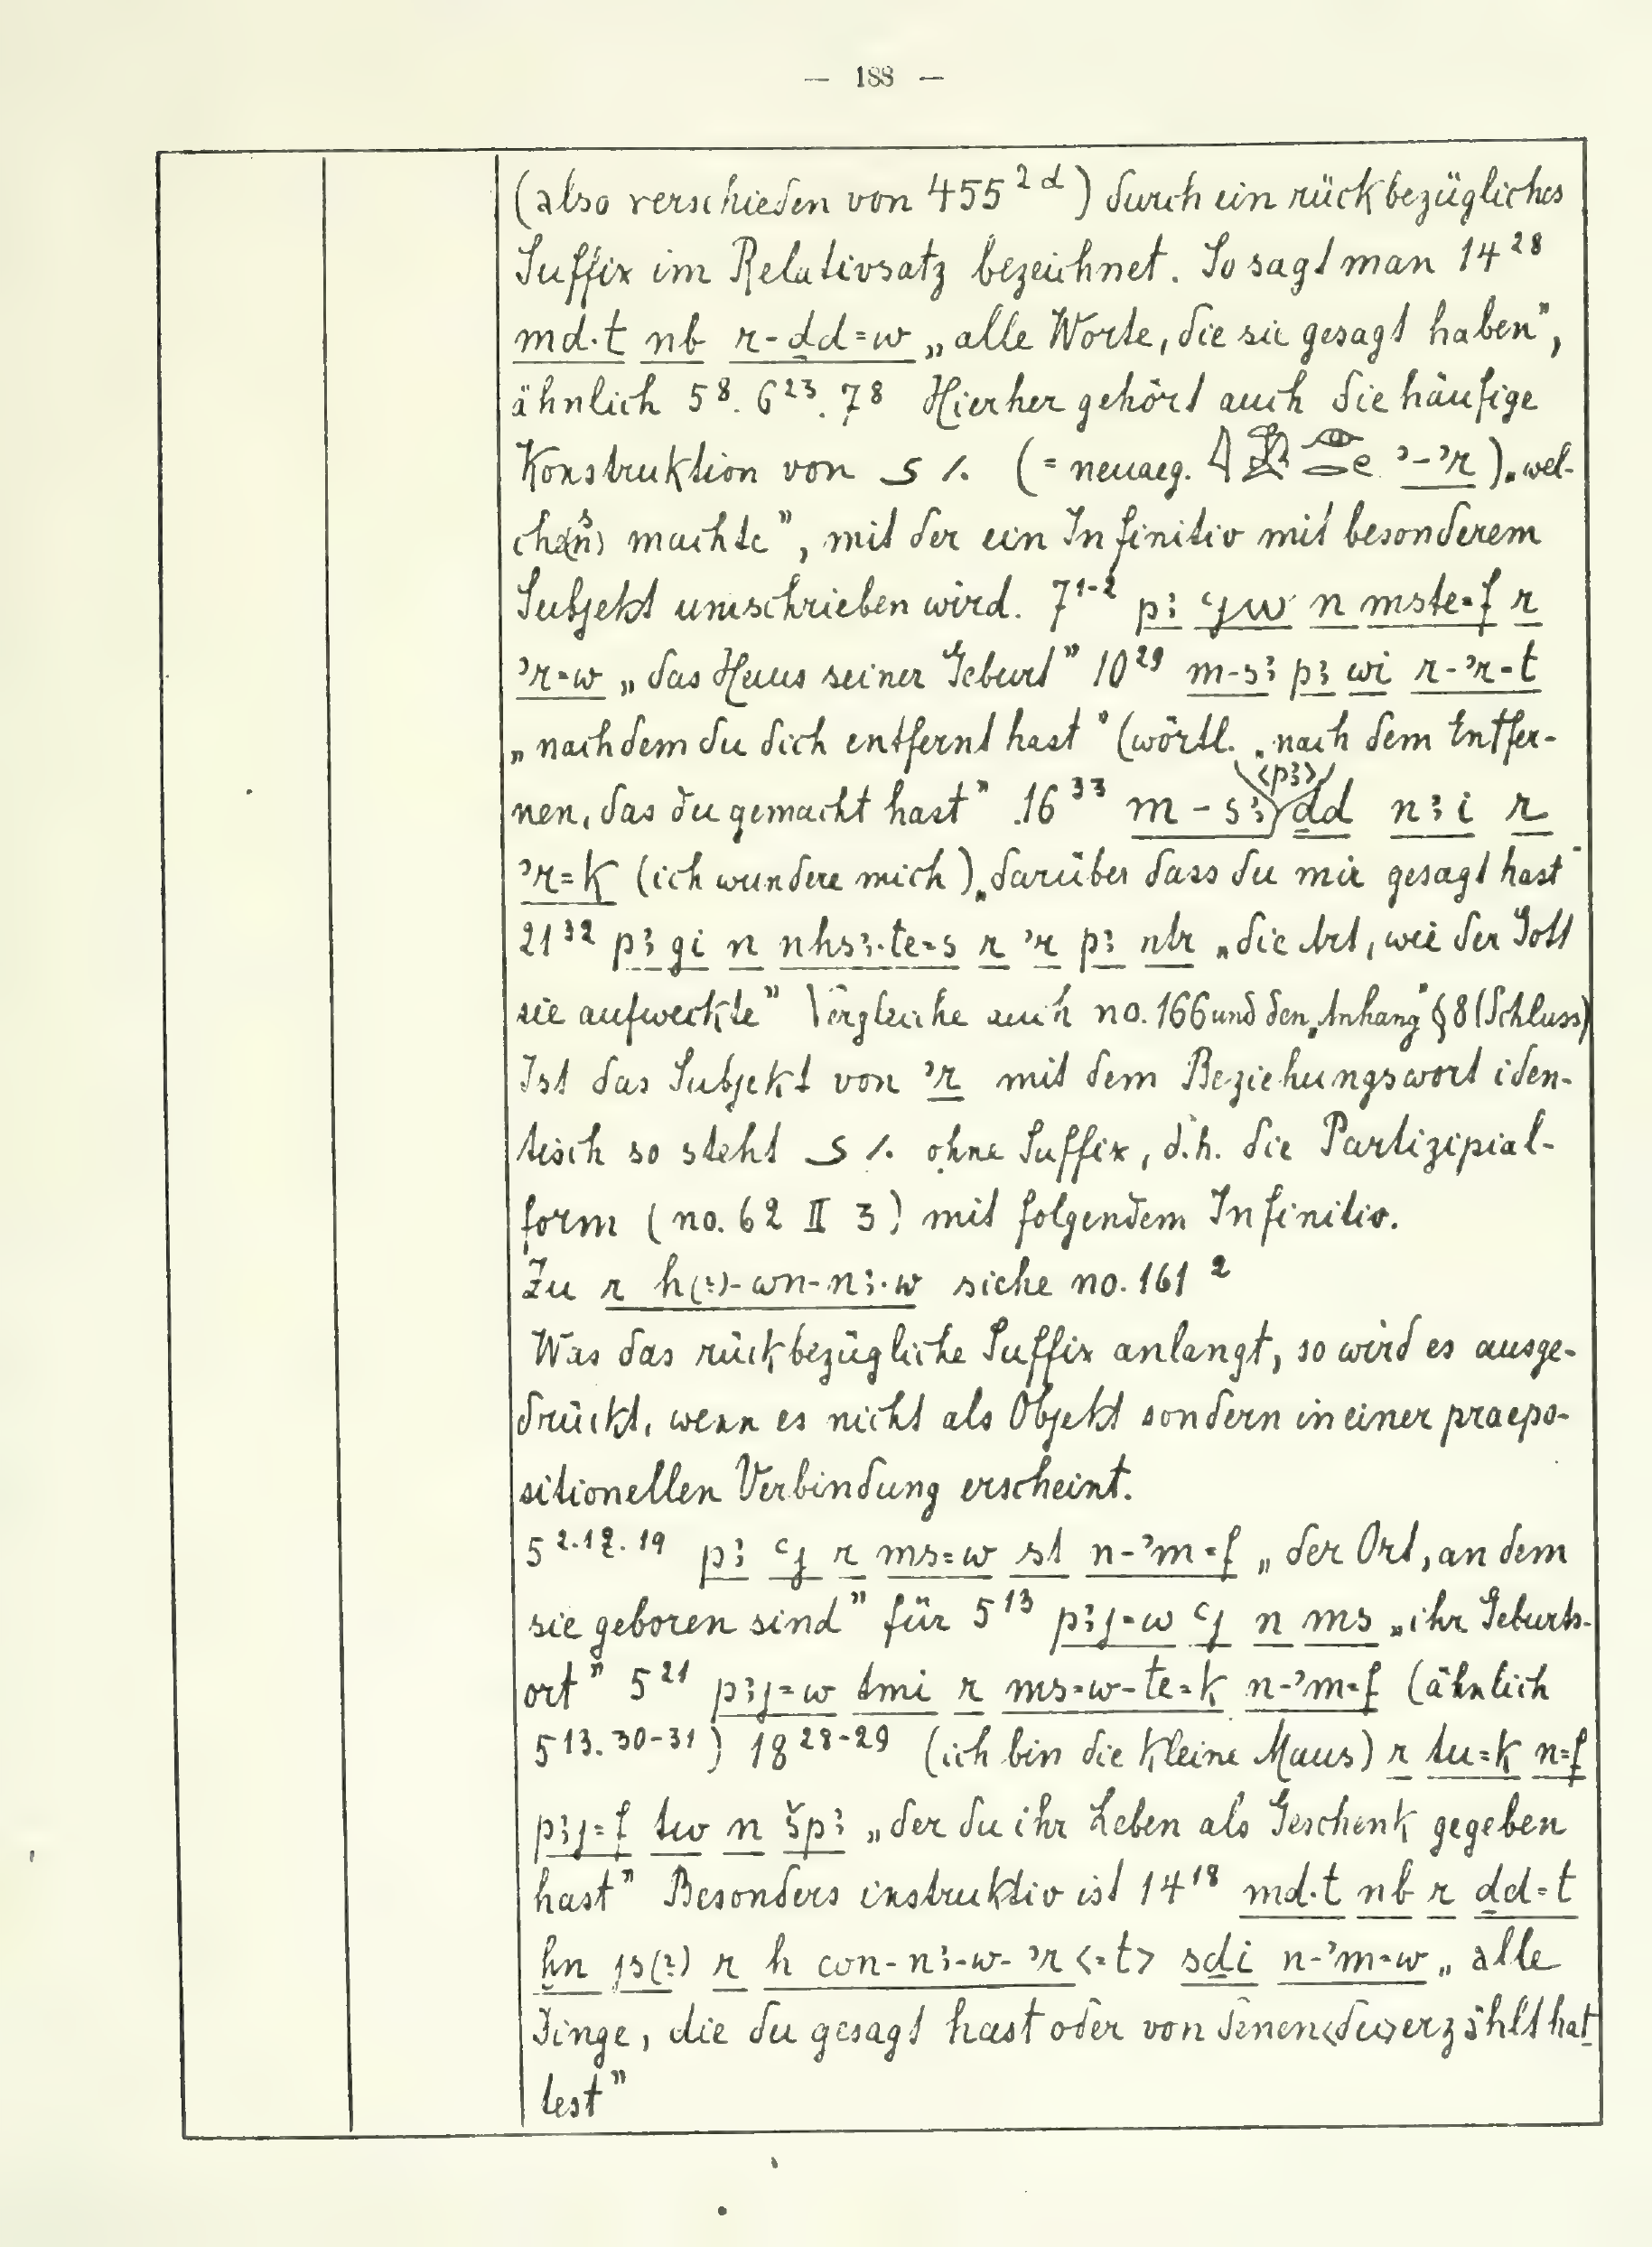 — 188 —
(also verschieden von 455 ²ᵈ) durch ein rückbezügliches
Suffix im Relativsatz bezeichnet. So sagt man 14²⁸
md·t nb r-ḏd=w „alle Worte, die sie gesagt haben”,
ähnlich 5⁸. 6²³. 7⁸ Hierher gehört auch die häufige
Konstruktion von (= neuaeg. ʾ-ʾr) „wel-
che(n) machte”, mit der ein Infinitiv mit besonderem
Subjekt umschrieben wird. 7¹⁻² pꜣ ꜥjw n mste=f r
ʾr=w „das Haus seiner Geburt” 10²⁹ m-sꜣ pꜣ wi r-ʾr-t
„nachdem du dich entfernt hast” (wörtl. „nach dem Entfer-
nen, das du gemacht hast” 16³³ m-sꜣ <pꜣ> ḏd nꜣi r
ʾr=k (ich wundere mich) „darüber dass du mir gesagt hast”
21³² pꜣ gi n nhsꜣ·te=s r ʾr pꜣ ntr „die Art, wie der Gott
sie aufweckte” Vergleiche auch no. 166 und den „Anhang” § 8 (Schluss)
Ist das Subjekt von ʾr mit dem Beziehungswort iden-
tisch so steht ohne Suffix, d.h. die Partizipial-
form (no. 62 II 3) mit folgendem Infinitiv.
Zu r h(ꜣ)-wn-nꜣ·w siehe no. 161 ²
Was das rückbezügliche Suffix anlangt, so wird es ausge-
drückt, wenn es nicht als Objekt sondern in einer praepo-
sitionellen Verbindung erscheint.
5 pꜣ ꜥj r ms=w st n-ʾm=f „der Ort, an dem
sie geboren sind” für 5¹³ pꜣj=w ꜥj n ms „ihr Geburts-
ort” 5²¹ pꜣj=w tmi r ms=w-te=k n-ʾm=f (ähnlich
5¹³·³⁰⁻³¹) 18²⁸⁻²⁹ (ich bin die kleine Maus) r tu=k n=f
pꜣj=f tw n špꜣ „der du ihr Leben als Geschenk gegeben
hast” Besonders instruktiv ist 14¹⁸ md·t nb r ḏd=t
ẖn js(?) r h wn-nꜣ-w-ʾr <=t> sḏi n-ʾm=w „alle
Dinge, die du gesagt hast oder von denen <du> erzählt hat
test”